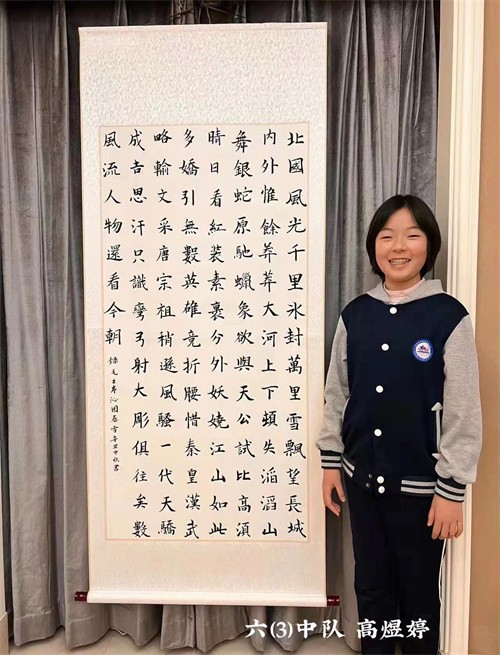 北國風光千里冰封萬里雪飄望長城
内外惟餘莽莽大河上下頓失滔滔山
舞銀蛇原馳蠟象欲與天公試比高須
晴日看紅裝素裹分外妖嬈江山如此
多嬌引無數英雄竞折腰惜秦皇漢武
略輸文采唐宗祖稍遜風騷一代天驕
成吉思汗只識彎弓射大彫俱往矣數
風流人物還看今朝
錄毛主席沁園春雪辛丑中秋書
六(3)中队 高煜婷